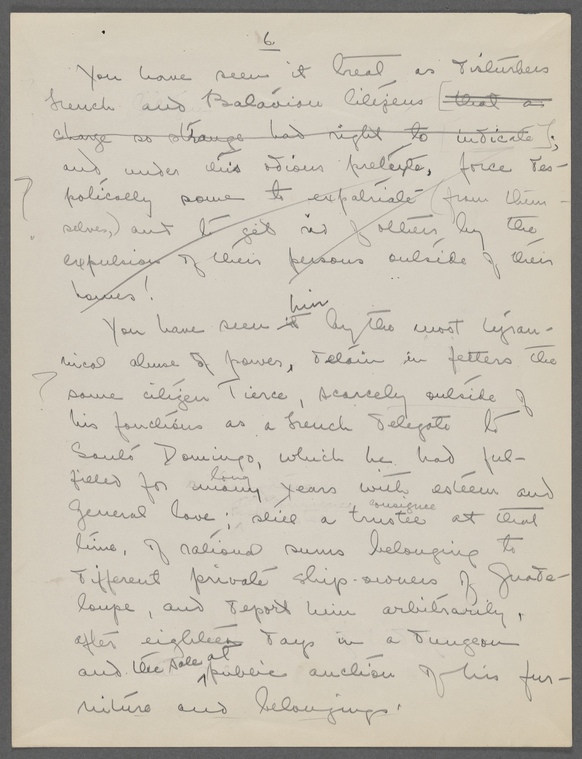 6
You have seen it treat as disturbers
French and Batavian Citizens [that a
charge so strange had right to indicate];
and under this odious pretexte, force des-
potically some to expatriate (from them-
selves,) and to get rid of others by the
expulsion of their persons outside of their
homes!
him
You have seen it by the most tyran-
nical abuse of power, detain in fetters the
? same citizen Tierce, scarcely outside of
his fonctions as a French Delegate to
Santo Domingo, which he had ful-
long
filled for many years with esteem and
consignee
General love; still a trustee at that
time, of rational sums belonging to
different private ship-owners of Guade-
loupe, and deport him arbitrarily,
after eighteen days in a dungeon
and the sale at public auction of his fur-
niture and belongings.